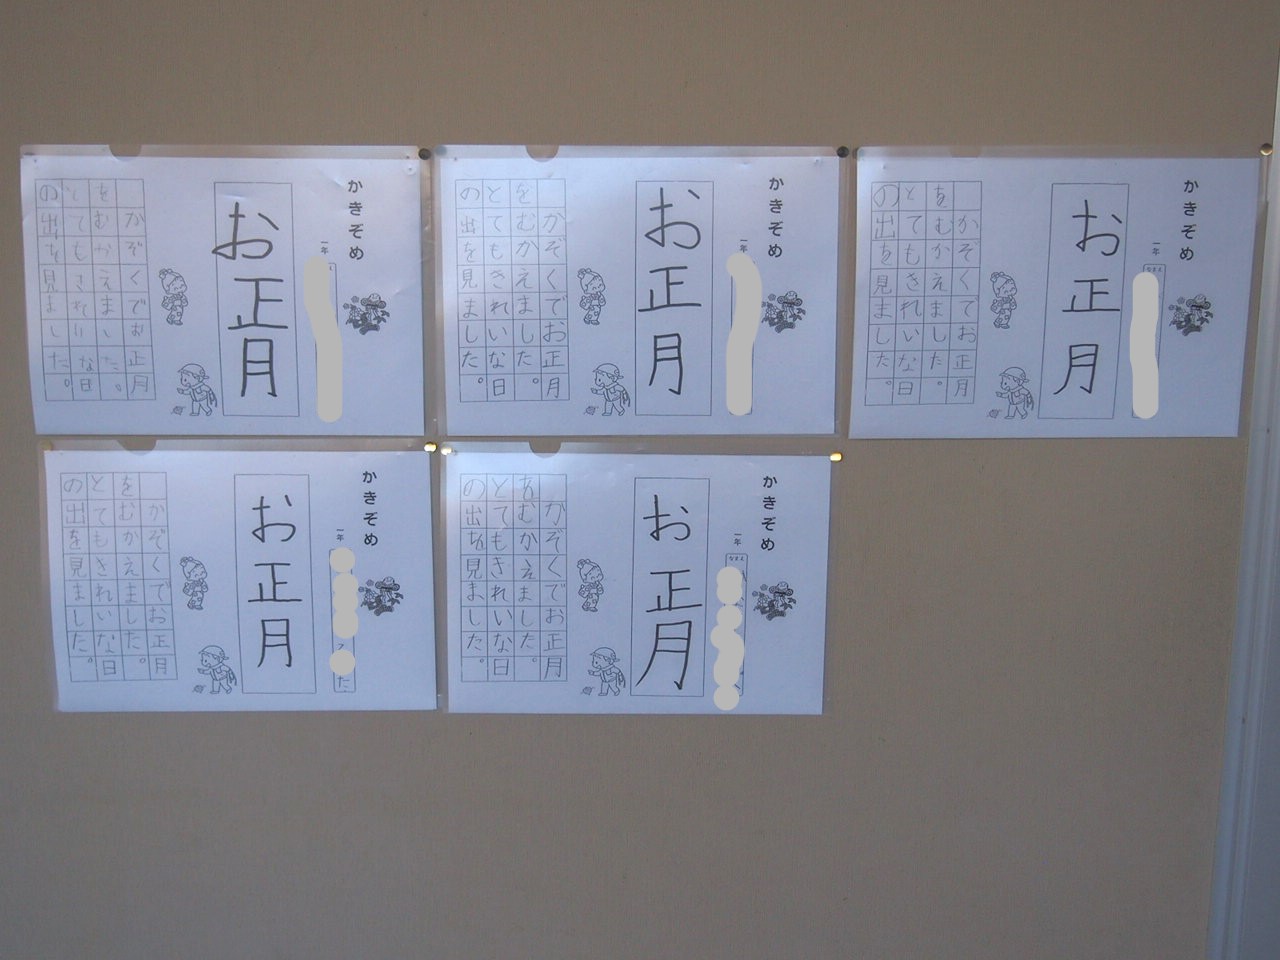 かきぞめ
一年
お正月
かぞくでお正月
をむかえました。
とてもきれいな日
の出を見ました。
かきぞめ
一年
お正月
かぞくでお正月
をむかえました。
とてもきれいな日
の出を見ました。
かきぞめ
一年
なまえ
お正月
かぞくでお正月
をむかえました。
とてもきれいな日
の出を見ました。
かきぞめ
一年
た
お正月
かぞくでお正月
をむかえました。
とてもきれいな日
の出を見ました。
かきぞめ
一年
なまえ
お正月
かぞくでお正月
をむかえました。
とてもきれいな日
の出を見ました。